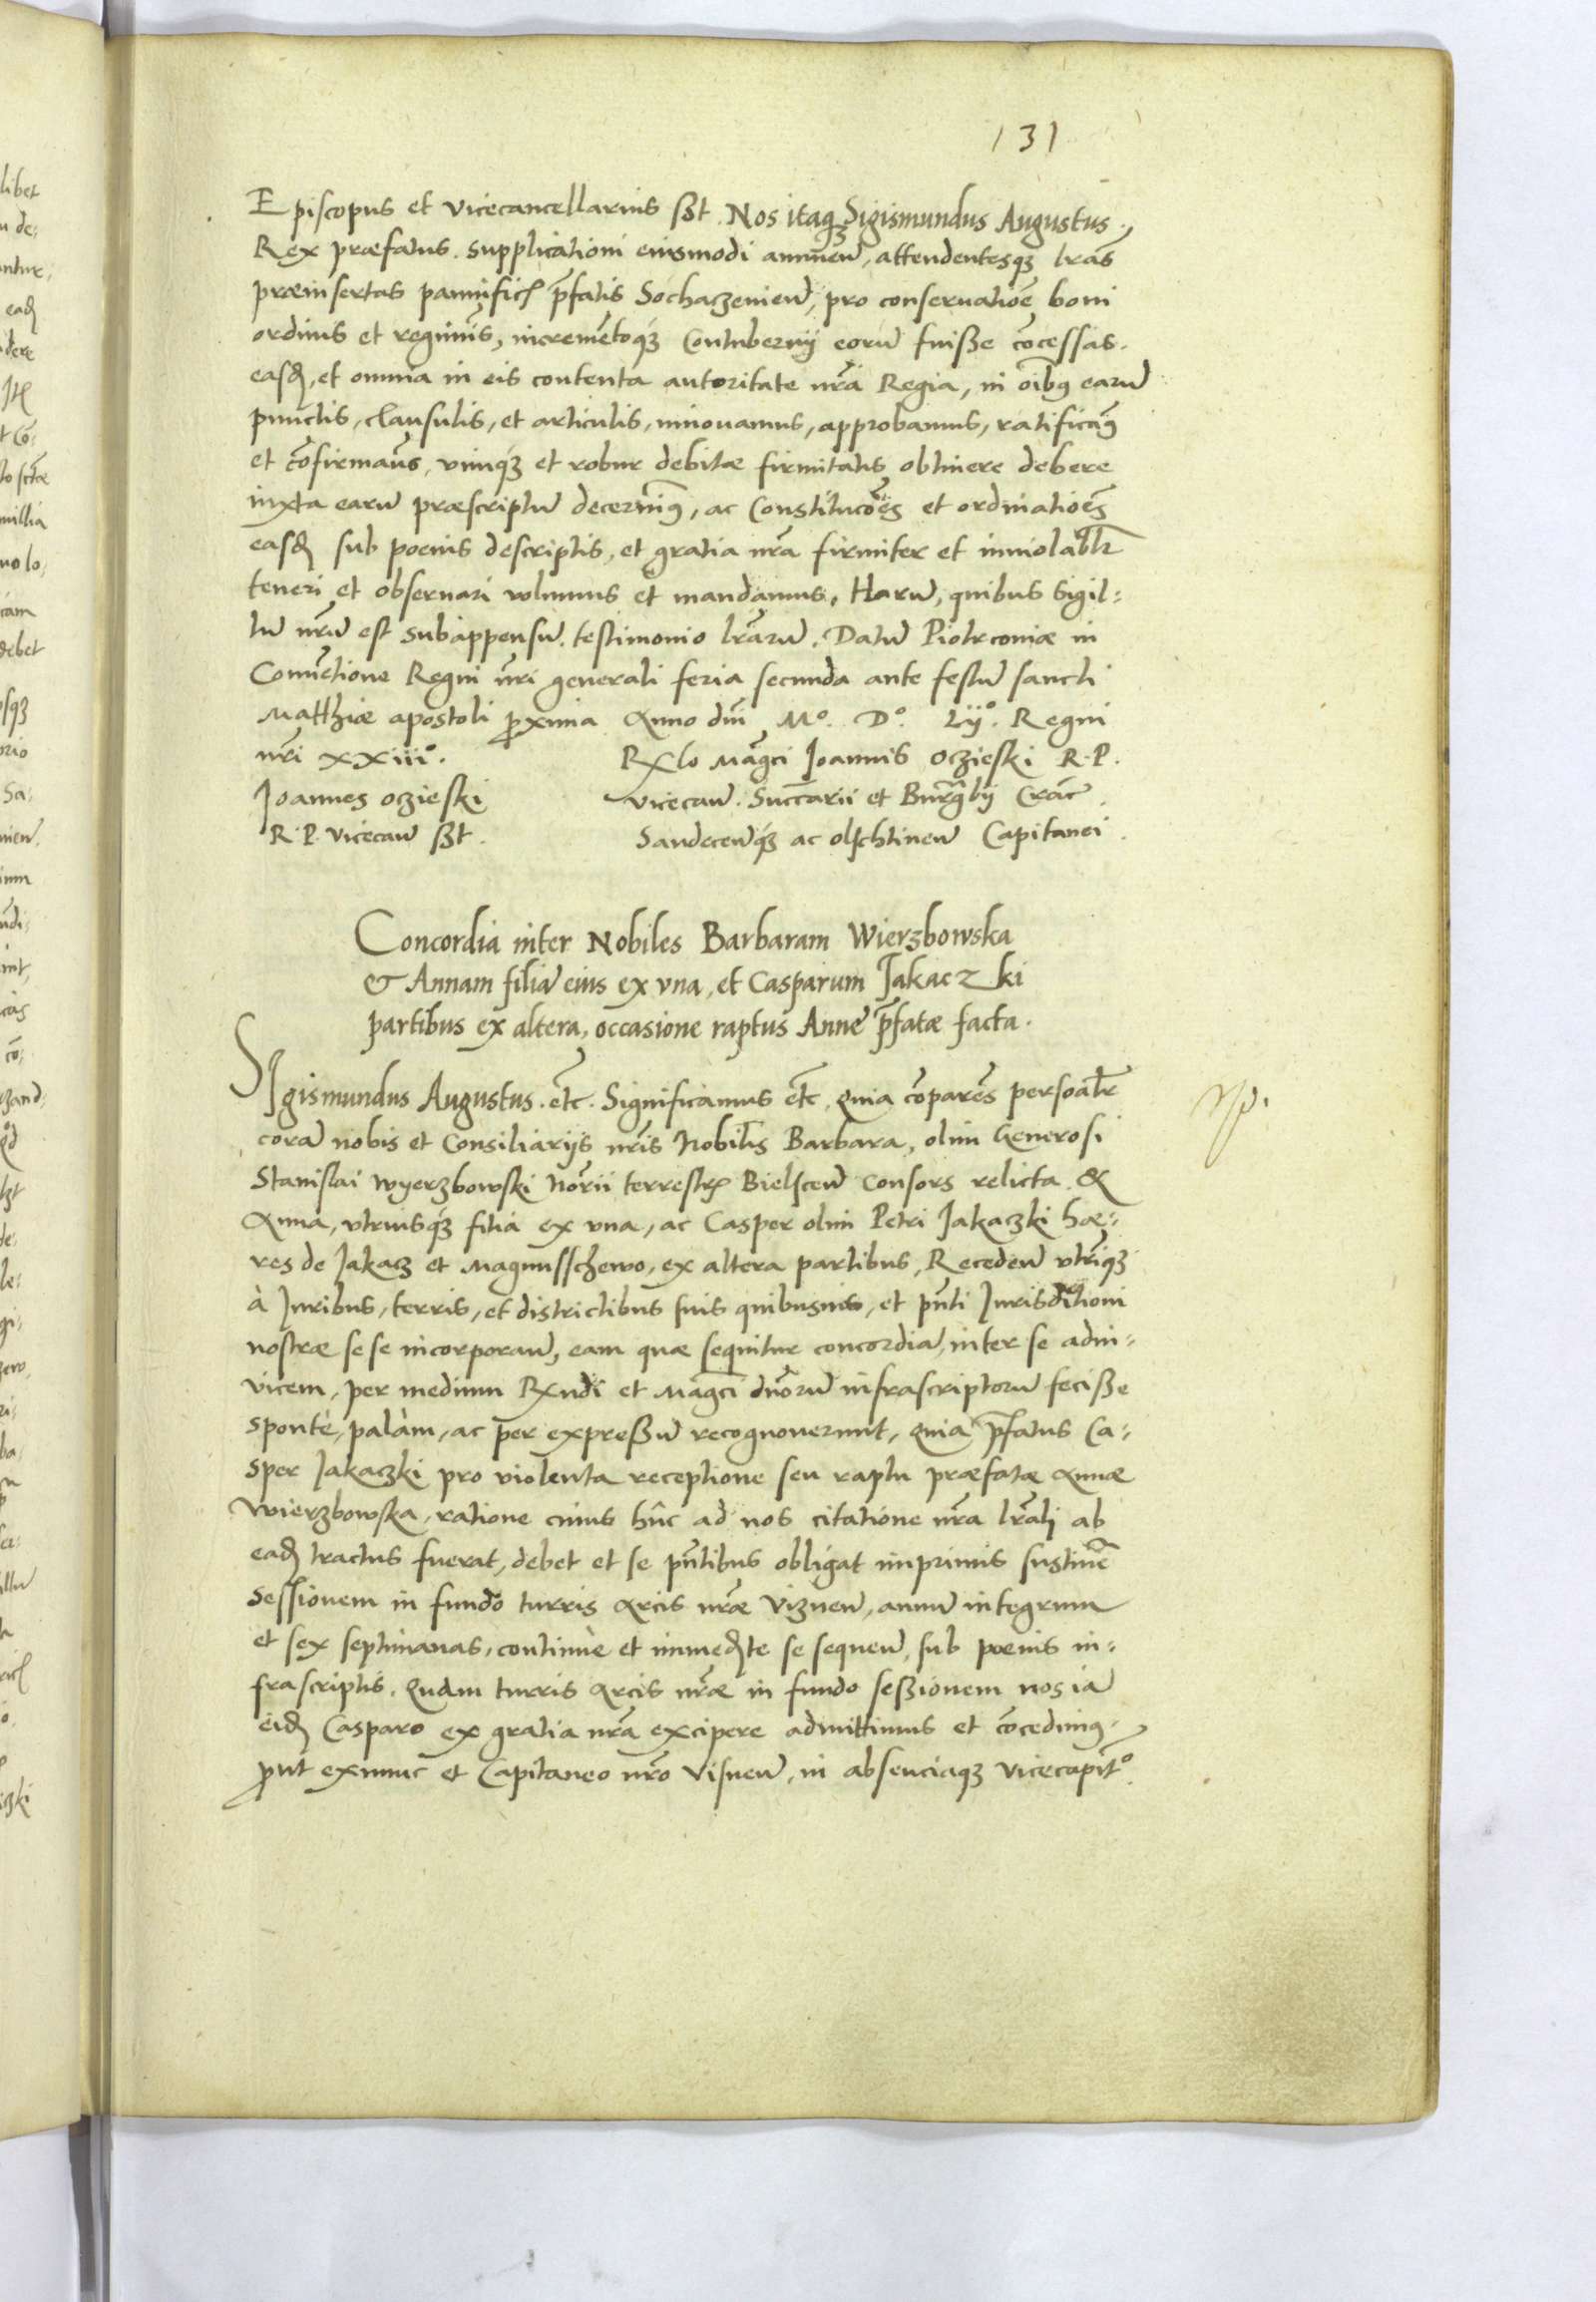 131
Episcopus et Vicecancellarius sst. Nos itaqꝫ Sigismundus Augustus.
Rex præfatus. supplicationi eiusmodi annueñ, attendentesqꝫ lras̃
præinsertas pannificꝭ p̃fatis Sochaczenieñ, pro conseruatioẽ boni
ordinis et regimis̃, incremẽtoqꝫ Contubernij eorũ fuisse cõcessas.
easd, et omnia in eis contenta autoritate nrã Regia, in oĩbꝰ earũ
punctis, clausulis, et articulis, innouamus, approbamus, ratificamꝰ
et cõfirmaũs, vimqꝫ et robur debitæ firmitatis obtinere debere
iuxta earũ præscriptũ decernimꝰ, ac Constitucoẽs et ordinatioẽs
easd sub poenis descriptis, et gratia nrã firmiter et inuiolablr̃
teneri et obseruari volumus et mandamus. Harũ, quibus Sigil:
lũ nrũ est subappensũ. testimonio lrãrũ. Datũ Piotrconiæ in
Conuẽtione Regni nrĩ generali feria secunda ante festũ sancti
Matthiæ apostoli p̃xima Anno dnĩ Mº. Dº. Lijº. Regni
nrĩ xxiiiº. Rlo Magc̃i Joannis Oczieski R. P.
Joannes Oczieski Vicecañ. Succ̃arii et Burgr̃bij Crac̃.
R. P. Vicecañ sst. Sandeceñqꝫ ac olschtineñ Capitanei.
Concordia inter Nobiles Barbaram Wierzbowska
& Annam filiã eius ex vna, et Casparum Jakaczki
partibus ex altera, occasione raptus Anne p̃fatæ facta.
Sigismundus Augustus. etc̃. Significamus etc̃. quia cõparẽs persoalr̃
corã nobis et Consiliarijs nrĩs Nobilis Barbara, olim Generosi
Stanislai Wyerzbowski Norĩi terrestrꝭ Bielsceñ Consors relicta &
Anna, vtriusqꝫ filia ex vna, ac Casper olim Petri Jakaczki hæ:
res de Jakacz et Magnusschewo, ex altera partibus, Recedeñ vtrĩqꝫ
à Juribus, terris, et districtibus suis quibusuis, et pñti Jurisditioni
nostræ se se incorporañ, eam quæ sequitur concordiã, inter se adin:
vicem, per medium Rndi et Magc̃i dñorũ infrascriptorũ fecisse
spontè, palàm, ac per expressũ recognouerunt, quia p̃fatus Ca:
sper Jakaczki pro violenta receptione seu raptu præfatæ Annæ
Wierzbowska, ratione cuius hũc ad nos citatione nrã lrãli ab
ead tractus fuerat, debet et se pñtibus obligat imprimis sustinẽ
sessionem in fundo turris Arcis nrẽ Vizneñ, annũ integrum
et sex septimanas, continuè et immedte se sequeñ, sub poenis in:
frascriptis. Quam turris Arcis nræ in fundo sessionem nos iã
eid Casparo ex gratia nrã excipere admittimus et cõcedimꝰ.
p̃ut exnunc et Capitaneo nrõ Visneñ, in absenciaqꝫ vicecapitº.